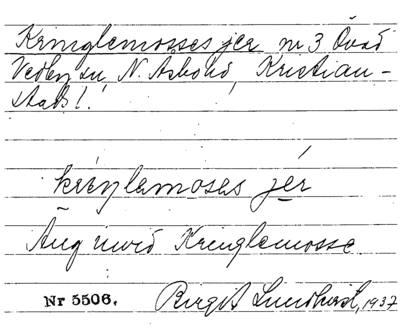 Kringlemosses jer nr 3 Övad
Vedby su N. Åsbohd, Kristian-
stads l.
kriŋlemoses jér
Äng invid Kringlemosse
Nr 5506. Birgit Lundquist, 1937